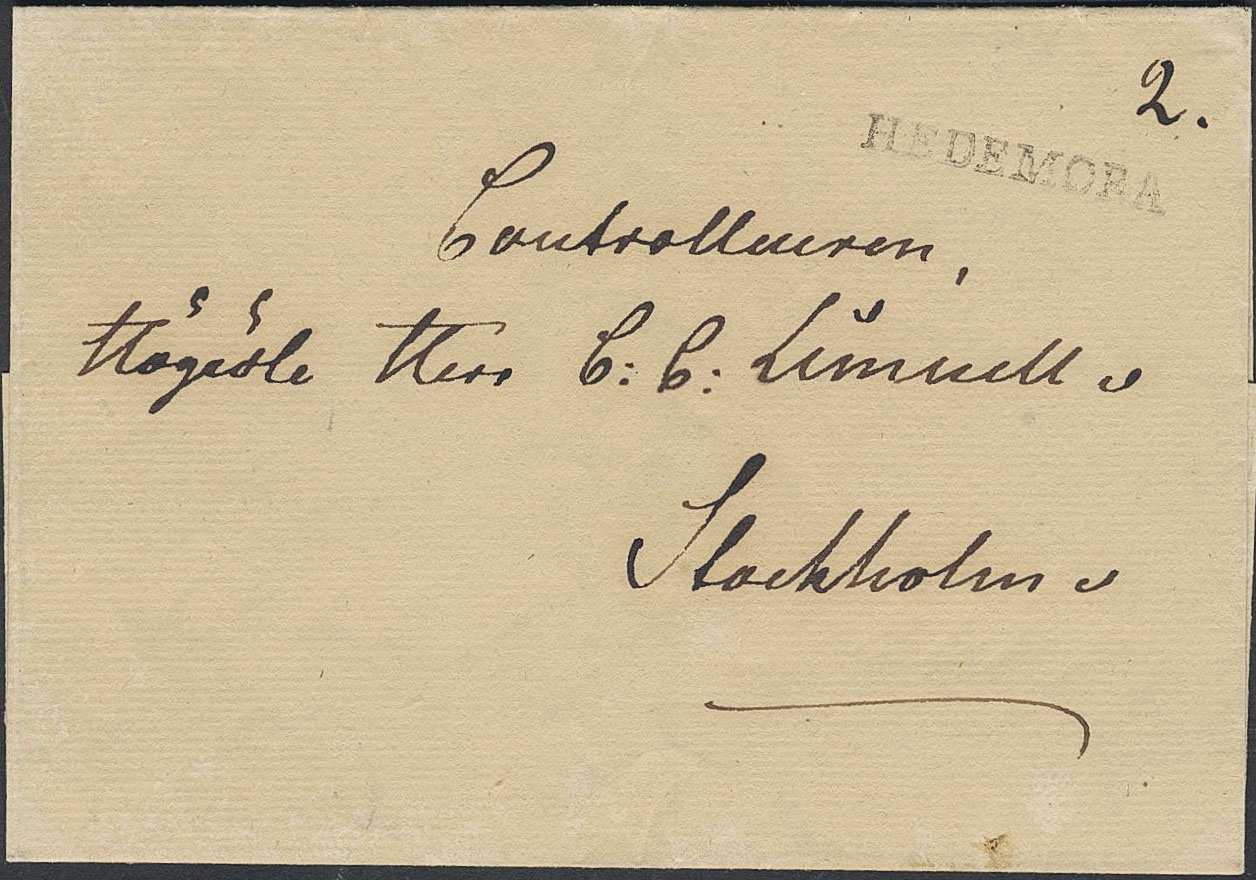 2.
HEDEMORA
Controlleuren,
Högädle Herr C: C: Limnell
Stockholm